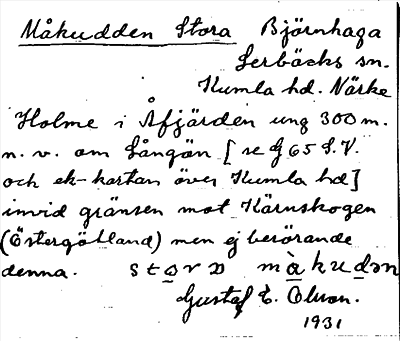 Måkudden Stora Björnhaga
Lerbäcks sn.
Kumla hd. Närke
Holme i Åfjärden ung 300 m.
n. v. om Långön [se G 65 S.V.
och ek-kartan över Kumla hd]
invid gränsen mot Kärnskogen
(Östergötland) men ej berörande
denna. storɒ màkudən
Gustaf E. Olson.
1931